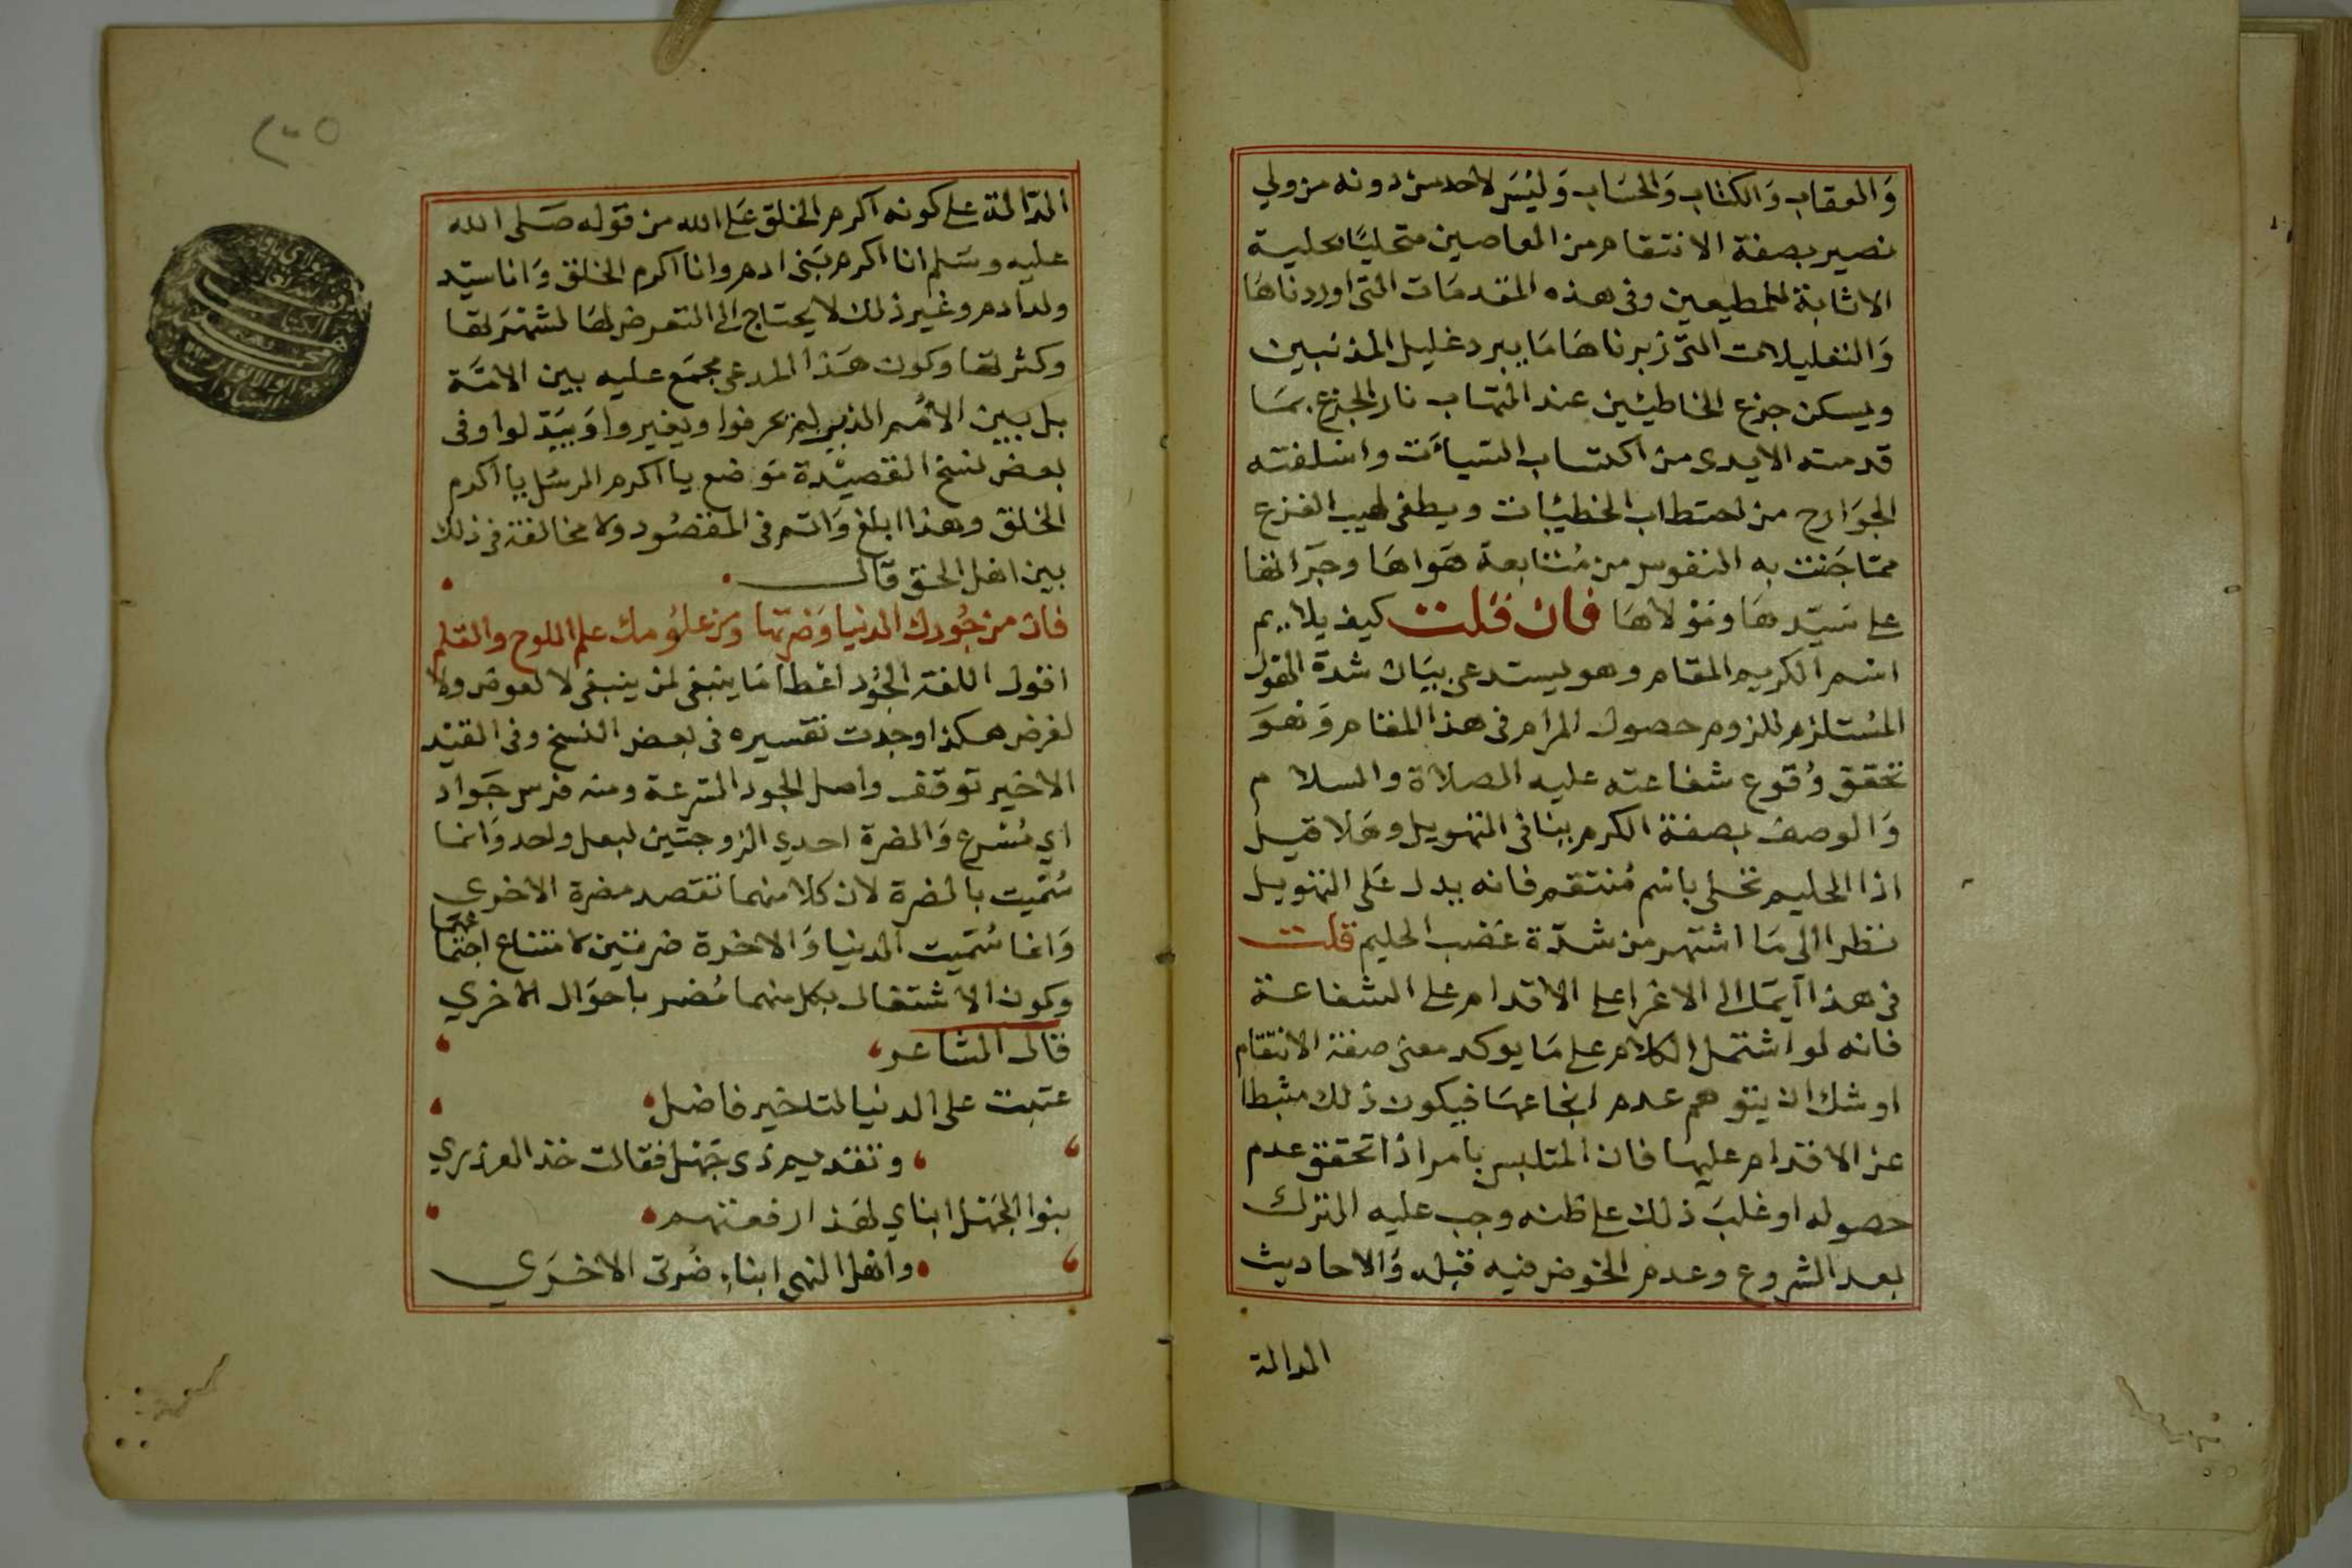 وَالعقاب وَالكتاب وَالحسَاب وَليسَ لاحد من دونه من ولي
نصير بصفة الانتقام من العاصين متحليًا بحلية
الاثابة للمطيعين وفى هذه المقدمَات التى اوردناهَا
وَالتعليلات التى زبرناهَا مَا يبرد غليل المذنبين
ويسكن جزع الخاطيئين عند التهاب نار الجزع بمَا
قدمته الايدى من اكتساب السيأت واسلفته
الجوَارح من احتطاب الخطيئات ويطفى لهيب الفزع
ممّا جَنت به النفوس من مُتابعة هَواهَا وجرَاتها
على سَيّدهَا ومَوْلاهَا فان قلت كيف يلايم
اسم الكريم المقام وهو يستدعى بيَان شدة الهول
المسْتلزم للزوم حصول المرام فى هذا المقام وَهوَ
تحقق وُقوع شفاعته عليه الصلاة والسلام
وَالوصف بصفة الكرم ينافى التهويل وهَلا قيل
اذا الحليم تحلى باسم مُنتقم فانه يدل عَلى التهويل
نظرا الى مَا اشتهر من شدّة غضب الحليم قلت
فى هذا ايمَا الى الاغرا على الاقدام على الشفاعة
فانه لو اشتمل الكلام على مَا يوكد معنى صفة الانتقام
اوشك ان يتوهم عدم انجاعهَا فيكون ذلك مثبطا
عن الاقدام عليهَا فان المتلبس بامر اذا تحقق عدم
حصوله او غلبَ ذلك على ظنه وجب عليه الترك
بعد الشروع وعدم الخوض فيه قبله وَالاحاديث
الدالة
٢٠٥
الدّالة على كونه اكرم الخلق عَلى الله من قوله صَلى الله
عليه وسَلم انا اكرم بَنى ادم وانا اكرم الخلق وَانا سيّد
ولد ادم وغير ذلك لا يحتاج الى التعرض لهَا لشهْرَتها
وكثرتها وكون هَذا المدعى مجمَع عليه بين الامّة
بل بين الامُم الذين لم يحرفوا ويغيروا وَيبَدّلوا وفى
بعض نسخ القصيْدة مَوضع يا اكرم الرسُل يا اكرم
الخلق وهذا ابلغ وَاتم فى المقصُود ولا مخالفة فى ذلك
بين اهل الحق قال
فان من جُودك الدنيا وَضرتها ومن علوُمك علم اللوح والقلم
اقول اللغة الجُود اعْطا مَا ينبغى لمن ينبغى لا لعوض ولا
لغرض هكذا وجدت تفسيره فى بعض النسخ وفى القيْد
الاخير توقف واصل الجود السّرعة ومنه فرس جَواد
اي مُسْرع وَالضرة احدي الزوجتين لبعل واحد وَانما
سُمّيت بالضرة لان كلا منهما تقصد مضرة الاخرى
وَانما سُمّيت الدنيا وَالاخرة ضرتين لامتناع اجتما
عهمَا
وكون الاشتغال بكل منهما مُضر باحوَال الاخري
قال الشاعر
عتبت على الدنيا لتاخير فاضل
وتقديم ذى جَهْل فقالت خذ العذري
بنوا الجَهْل ابناي لهَذا رفعتهم
واهل النهى ابناء ضُرتى الاخرَي